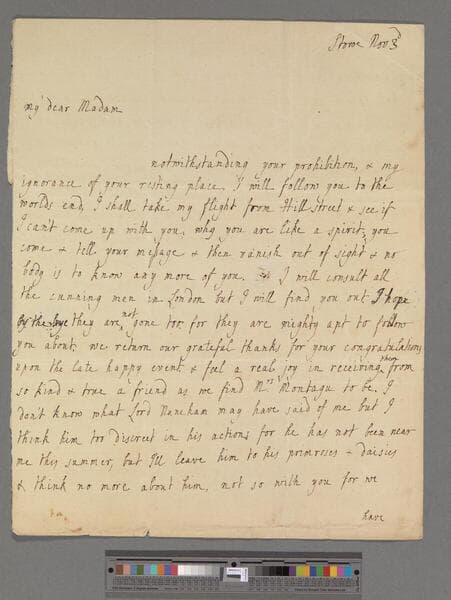 Stowe Nov 3d
my dear Madam
notwithstanding your prohibition, & my
ignorance of your resting place, I will follow you to the
worlds end, I shall take my flight from Hill Street & see if
I can't come up with you, why you are like a spirit, you
come & tell your message & then vanish out of sight & no
body is to know any more of you. I will consult all
the cunning men in London but I will find you out, I hope
by the bye they are not gone too, for they are mighty apt to follow
you about. we return our grateful thanks for your congratulations
upon the late happy event, & feel a real joy in receiving them from
so kind & true a friend as we find Mrs Montagu to be. I
don't know what Lord Nuneham may have said of me but I
think him too discreet in his actions for he has not been near
me this summer, but I'll leave him to his primroses & daisies
& think no more about him, not so with you for we
have